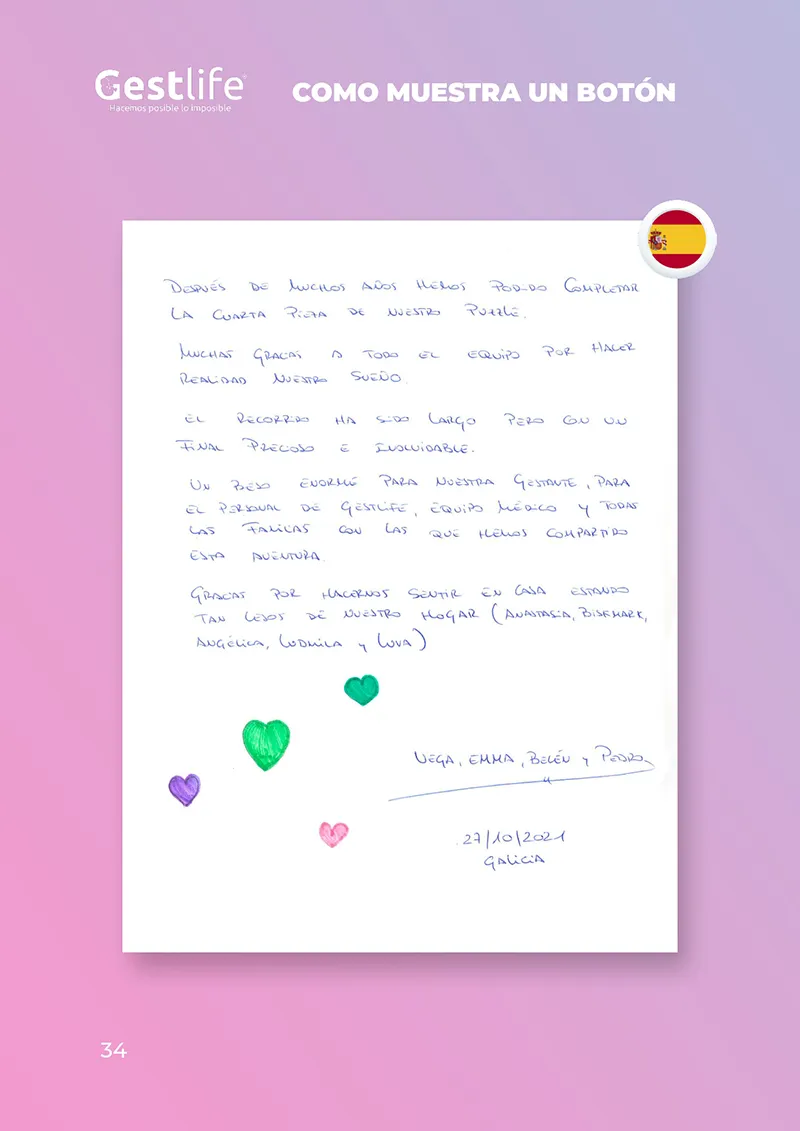 Gestlife
Hacemos posible lo imposible
COMO MUESTRA UN BOTÓN
DESPUÉS DE MUCHOS AÑOS HEMOS PODIDO COMPLETAR
LA CUARTA PIEZA DE NUESTRO PUZZLE.
MUCHAS GRACIAS A TODO EL EQUIPO POR HACER
REALIDAD NUESTRO SUEÑO.
EL RECORRIDO HA SIDO LARGO PERO CON UN
FINAL PRECIOSO E INOLVIDABLE.
UN BESO ENORME PARA NUESTRA GESTANTE, PARA
EL PERSONAL DE GESTLIFE, EQUIPO MÉDICO Y TODAS
LAS FAMILIAS CON LAS QUE HEMOS COMPARTIDO
ESTA AVENTURA.
GRACIAS POR HACERNOS SENTIR EN CASA ESTANDO
TAN LEJOS DE NUESTRO HOGAR (ANASTASIA, BISKMARK,
ANGÉLICA, LUDMILA Y LUVA)
VEGA, EMMA, BELÉN Y PEDRO
27/10/2021
GALICIA
34